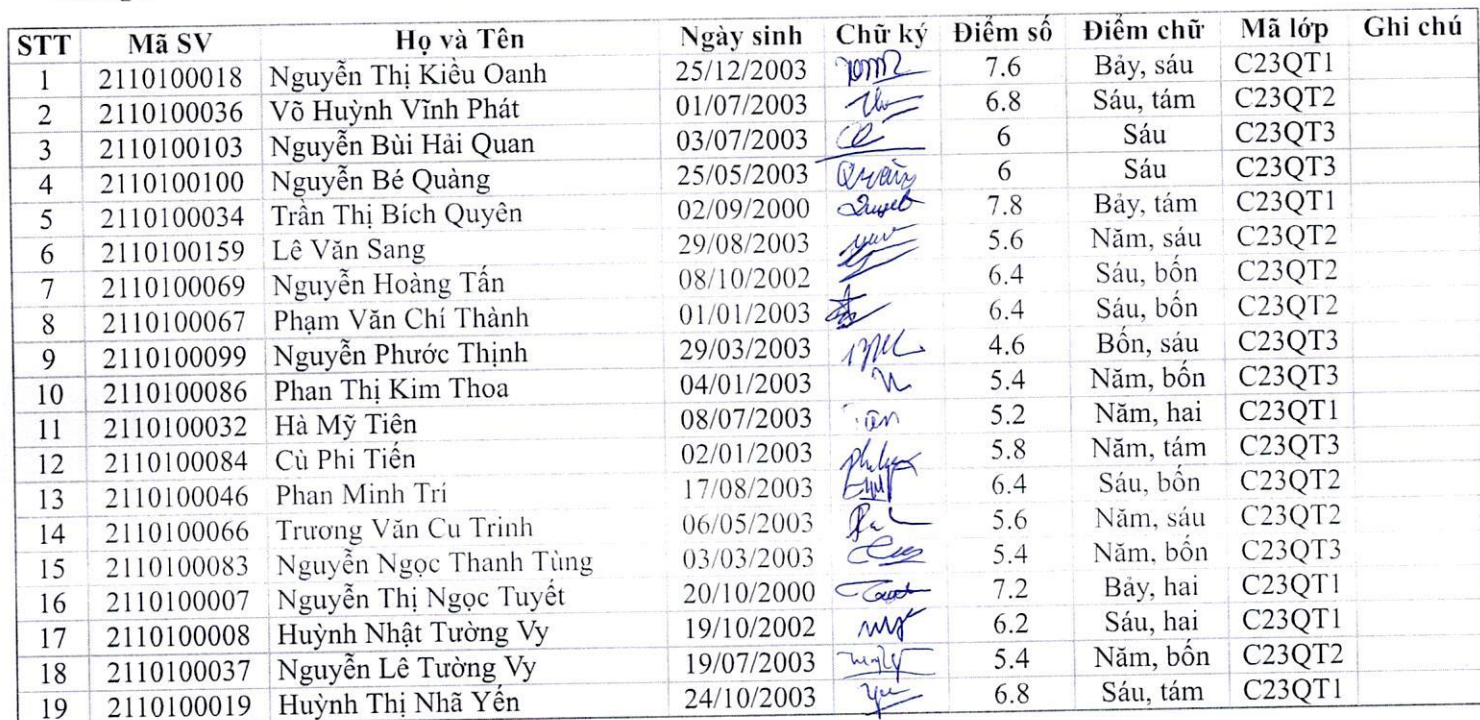 STT Mã SV Họ và Tên Ngày sinh Chữ ký Điểm số Điểm chữ Mã lớp Ghi chú
1 2110100018 Nguyễn Thị Kiều Oanh 25/12/2003 7.6 Bảy, sáu C23QT1
2 2110100036 Võ Huỳnh Vĩnh Phát 01/07/2003 6.8 Sáu, tám C23QT2
3 2110100103 Nguyễn Bùi Hải Quan 03/07/2003 6 Sáu C23QT3
4 2110100100 Nguyễn Bé Quàng 25/05/2003 6 Sáu C23QT3
5 2110100034 Trần Thị Bích Quyên 02/09/2000 7.8 Bảy, tám C23QT1
6 2110100159 Lê Văn Sang 29/08/2003 5.6 Năm, sáu C23QT2
7 2110100069 Nguyễn Hoàng Tấn 08/10/2002 6.4 Sáu, bốn C23QT2
8 2110100067 Phạm Văn Chí Thành 01/01/2003 6.4 Sáu, bốn C23QT2
9 2110100099 Nguyễn Phước Thịnh 29/03/2003 4.6 Bốn, sáu C23QT3
10 2110100086 Phan Thị Kim Thoa 04/01/2003 5.4 Năm, bốn C23QT3
11 2110100032 Hà Mỹ Tiên 08/07/2003 5.2 Năm, hai C23QT1
12 2110100084 Cù Phi Tiến 02/01/2003 5.8 Năm, tám C23QT3
13 2110100046 Phan Minh Trí 17/08/2003 6.4 Sáu, bốn C23QT2
14 2110100066 Trương Văn Cu Trinh 06/05/2003 5.6 Năm, sáu C23QT2
15 2110100083 Nguyễn Ngọc Thanh Tùng 03/03/2003 5.4 Năm, bốn C23QT3
16 2110100007 Nguyễn Thị Ngọc Tuyết 20/10/2000 7.2 Bảy, hai C23QT1
17 2110100008 Huỳnh Nhật Tường Vy 19/10/2002 6.2 Sáu, hai C23QT1
18 2110100037 Nguyễn Lê Tường Vy 19/07/2003 5.4 Năm, bốn C23QT2
19 2110100019 Huỳnh Thị Nhã Yến 24/10/2003 6.8 Sáu, tám C23QT1